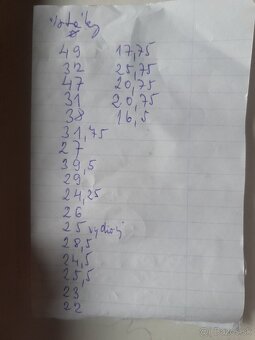 vrtáky
49 17,75
32 25,75
47 20,75
31 20,75
38 16,5
31,75
27
39,5
29
24,25
26
25
28,5
24,5
25,5
23
22